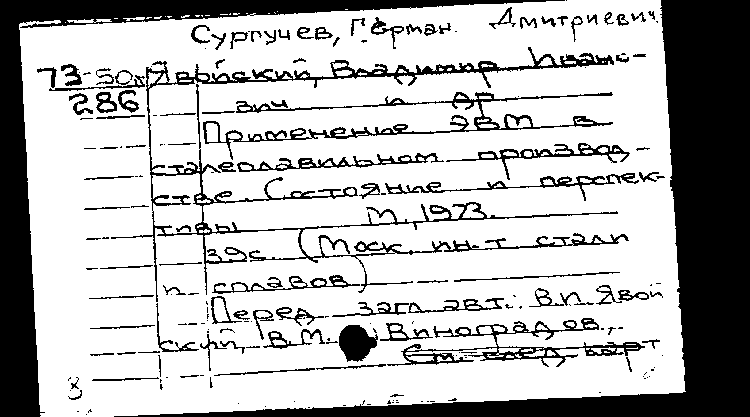 Сургучев, Герман Дмитриевич
73-50к Явойский, Владимир Ивано-
286 вич и др
Применение ЭВМ в
сталеплавильном производ-
стве. Состояние и перспек-
тивы М., 1973.
39с. (Моск. ин-т стали
и сплавов)
Перед загл авт.: В.И. Явой
ский, В.М. Виноградов.,
См. след. карт
8